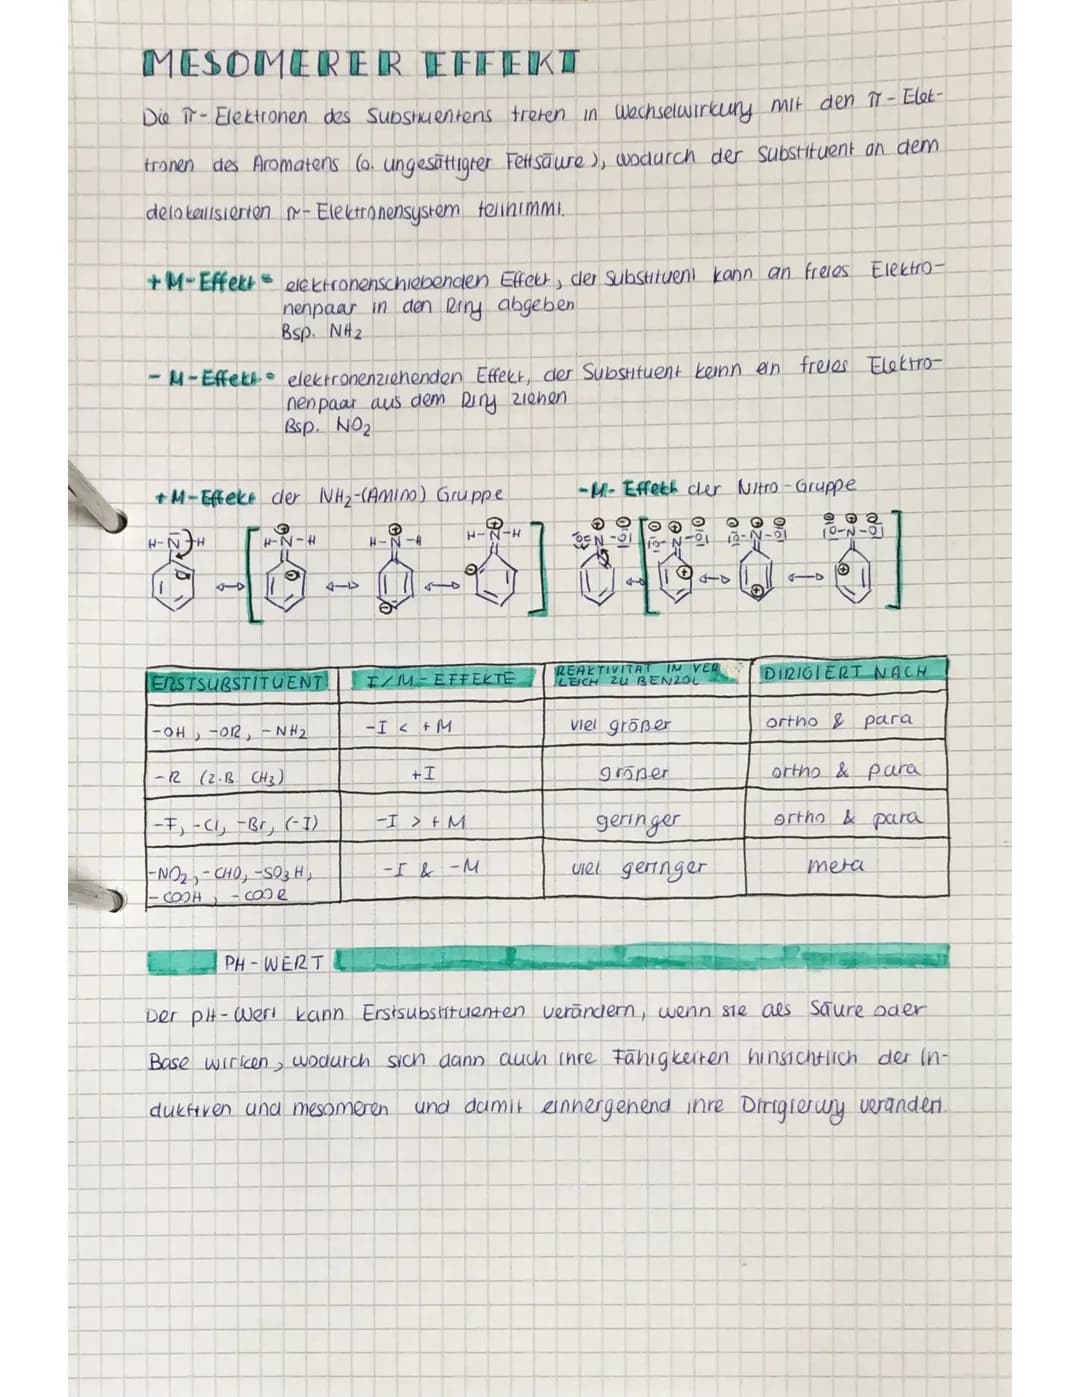 MESOMERER EFFEKT
Die π-Elektronen des Substituentens treten in Wechselwirkung mit den π-Elek-
tronen des Aromatens (o. ungesättigter Fettsäure), wodurch der Substituent an dem
delokalisierten π-Elektronensystem teilnimmt.
+M-Effekt = elektronenschiebenden Effekt, der Substituent kann an freies Elektro-
nenpaar in den Ring abgeben
Bsp. NH2
-M-Effekt = elektronenziehenden Effekt, der Substituent kann ein freies Elektro-
nenpaar aus dem Ring ziehen
Bsp. NO2
+M-Effekt der NH2-(Amino) Gruppe
-M-Effekt der Nitro-Gruppe
H-N-H H-N-H H-N-H H-N-H
ERSTSUBSTITUENT I/M-EFFEKTE REAKTIVITÄT IN VER DIRIGIERT NACH
LEICH ZU BENZOL
-OH, -OR, -NH2 -I < +M viel größer ortho & para
-R (z.B. CH3) +I größer ortho & para
-F, -Cl, -Br, (-I) -I > +M geringer ortho & para
-NO2, -CHO, -SO3H, -I & -M viel geringer meta
-COOH, -COOR
PH-WERT
Der pH-Wert kann Erstsubstituenten verändern, wenn sie als Säure oder
Base wirken, wodurch sich dann auch ihre Fähigkeiten hinsichtlich der in-
duktiven und mesomeren und damit einhergehend ihre Dirigierung verändert.